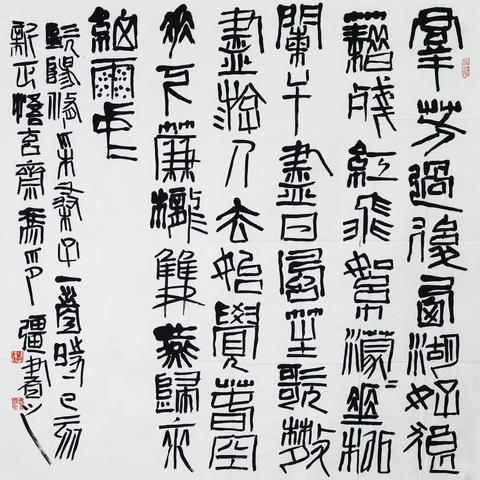 羣芳過後西湖好狼
藉殘紅飛絮濛濛垂柳
闌干盡日風笙歌散
盡游人去始覺春空
垂下簾櫳雙燕歸來
細雨中
歐陽修采桑子一首時己亥
新正 齋 疆書